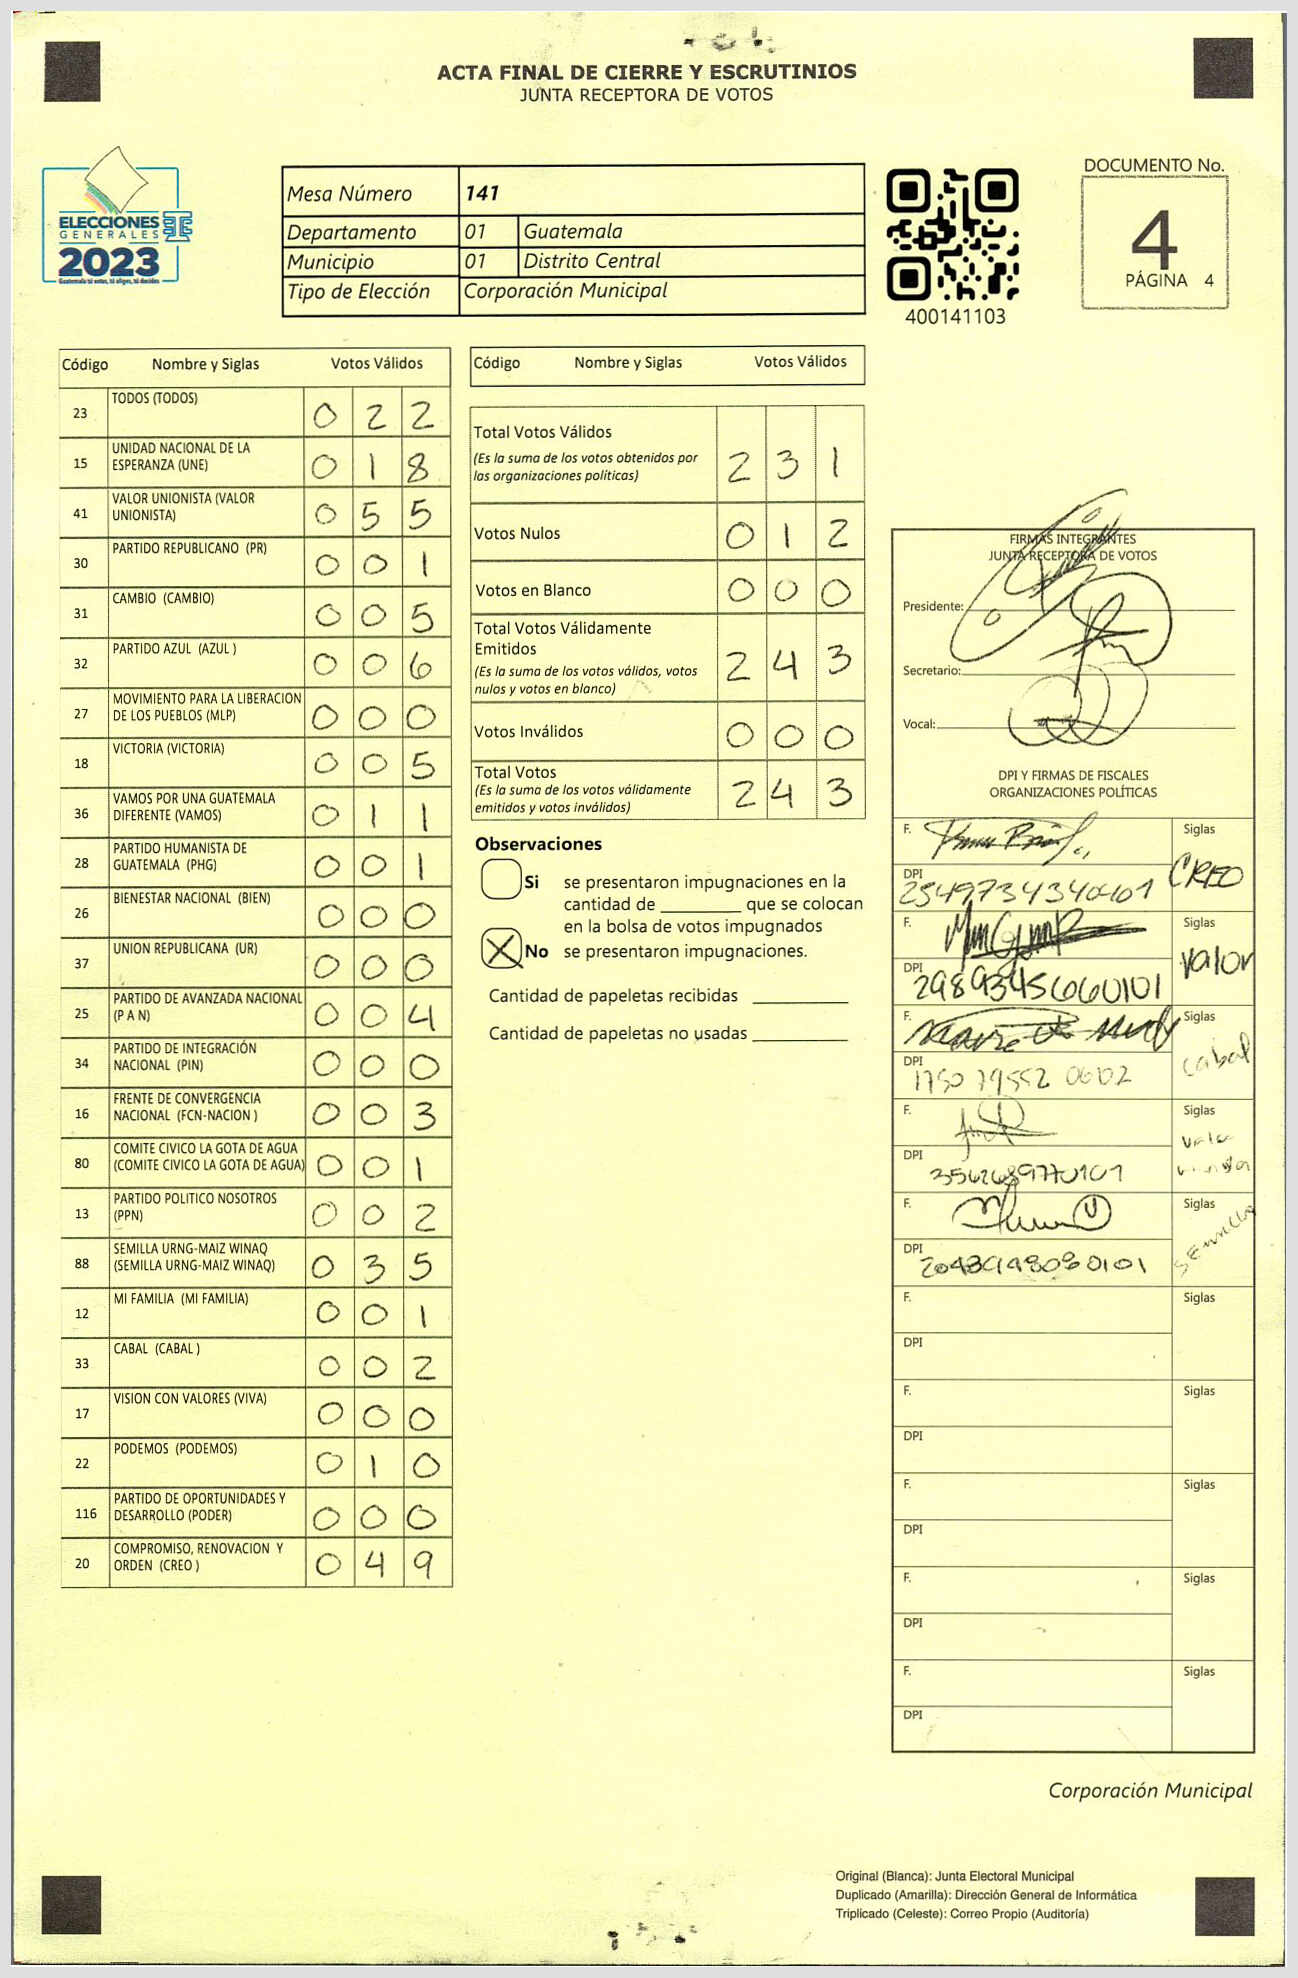 ACTA FINAL DE CIERRE Y ESCRUTINIOS
JUNTA RECEPTORA DE VOTOS
ELECCIONES
GENERALES
2023
Guatemala tú votas, tú eliges, tú decides
Mesa Número 141
Departamento 01 Guatemala
Municipio 01 Distrito Central
Tipo de Elección Corporación Municipal
400141103
DOCUMENTO No.
4
PÁGINA 4
Código Nombre y Siglas Votos Válidos
23 TODOS (TODOS) 0 2 2
15 UNIDAD NACIONAL DE LA
ESPERANZA (UNE) 0 1 8
41 VALOR UNIONISTA (VALOR
UNIONISTA) 0 5 5
30 PARTIDO REPUBLICANO (PR) 0 0 1
31 CAMBIO (CAMBIO) 0 0 5
32 PARTIDO AZUL (AZUL ) 0 0 6
27 MOVIMIENTO PARA LA LIBERACION
DE LOS PUEBLOS (MLP) 0 0 0
18 VICTORIA (VICTORIA) 0 0 5
36 VAMOS POR UNA GUATEMALA
DIFERENTE (VAMOS) 0 1 1
28 PARTIDO HUMANISTA DE
GUATEMALA (PHG) 0 0 1
26 BIENESTAR NACIONAL (BIEN) 0 0 0
37 UNION REPUBLICANA (UR) 0 0 0
25 PARTIDO DE AVANZADA NACIONAL
(P A N) 0 0 4
34 PARTIDO DE INTEGRACIÓN
NACIONAL (PIN) 0 0 0
16 FRENTE DE CONVERGENCIA
NACIONAL (FCN-NACION ) 0 0 3
80 COMITE CIVICO LA GOTA DE AGUA
(COMITE CIVICO LA GOTA DE AGUA) 0 0 1
13 PARTIDO POLITICO NOSOTROS
(PPN) 0 0 2
88 SEMILLA URNG-MAIZ WINAQ
(SEMILLA URNG-MAIZ WINAQ) 0 3 5
12 MI FAMILIA (MI FAMILIA) 0 0 1
33 CABAL (CABAL ) 0 0 2
17 VISION CON VALORES (VIVA) 0 0 0
22 PODEMOS (PODEMOS) 0 1 0
116 PARTIDO DE OPORTUNIDADES Y
DESARROLLO (PODER) 0 0 0
20 COMPROMISO, RENOVACION Y
ORDEN (CREO ) 0 4 9
Código Nombre y Siglas Votos Válidos
Total Votos Válidos
(Es la suma de los votos obtenidos por
las organizaciones políticas) 2 3 1
Votos Nulos 0 1 2
Votos en Blanco 0 0 0
Total Votos Válidamente
Emitidos
(Es la suma de los votos válidos, votos
nulos y votos en blanco) 2 4 3
Votos Inválidos 0 0 0
Total Votos
(Es la suma de los votos válidamente
emitidos y votos inválidos) 2 4 3
Observaciones
Si se presentaron impugnaciones en la
cantidad de ________ que se colocan
en la bolsa de votos impugnados
X No se presentaron impugnaciones.
Cantidad de papeletas recibidas
Cantidad de papeletas no usadas
FIRMAS INTEGRANTES
JUNTA RECEPTORA DE VOTOS
Presidente:
Secretario:
Vocal:
DPI Y FIRMAS DE FISCALES
ORGANIZACIONES POLÍTICAS
F. Siglas
CREO
DPI
2549734340401
F. Siglas
Valor
DPI
2989345660101
F. Siglas
cabal
DPI
1750 79552 0602
F. Siglas
DPI
F. Siglas
SEMILLA
DPI
F. Siglas
DPI
F. Siglas
DPI
F. Siglas
DPI
F. Siglas
DPI
F. Siglas
DPI
Corporación Municipal
Original (Blanca): Junta Electoral Municipal
Duplicado (Amarilla): Dirección General de Informática
Triplicado (Celeste): Correo Propio (Auditoría)